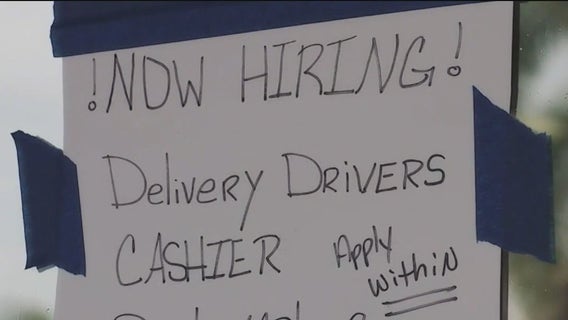 !NOW HIRING!
Delivery DRiVERS
CASHIER
Apply
WithiN